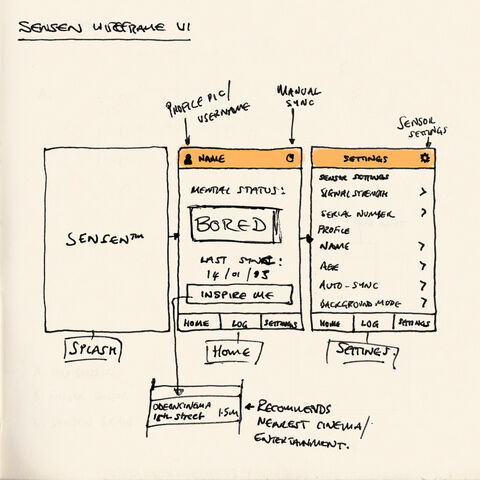 SENSEN WIREFRAME V1
PROFILE PIC/
USERNAME
MANUAL
SYNC
SENSOR
SETTINGS
SENSEN™
NAME
MENTAL STATUS:
BORED
LAST SYNC:
14/01/13
INSPIRE ME
HOME LOG SETTINGS
SETTINGS
SENSOR SETTINGS
SIGNAL STRENGTH >
SERIAL NUMBER >
PROFILE
NAME >
AGE >
AUTO-SYNC >
BACKGROUND MODE >
HOME LOG SETTINGS
SPLASH
HOME
SETTINGS.
ODEON CINEMA
18th Street 1.5M
RECOMMENDS
NEAREST CINEMA/
ENTERTAINMENT.